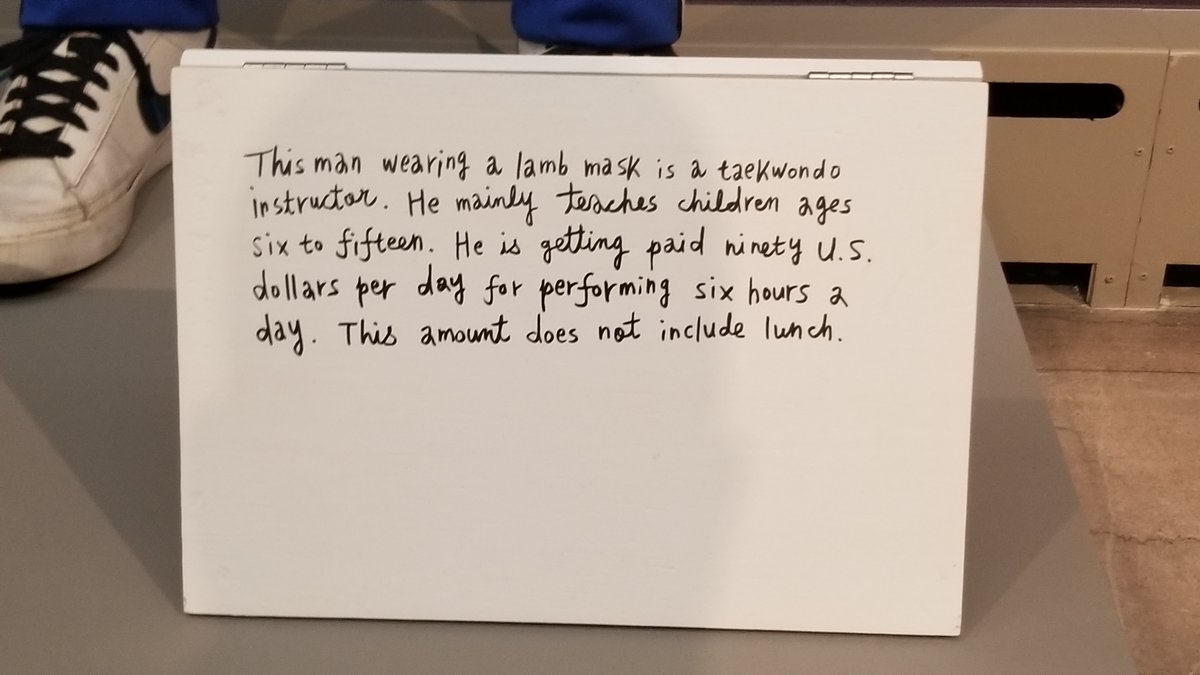 This man wearing a lamb mask is a taekwondo
instructor. He mainly teaches children ages
six to fifteen. He is getting paid ninety U.S.
dollars per day for performing six hours a
day. This amount does not include lunch.